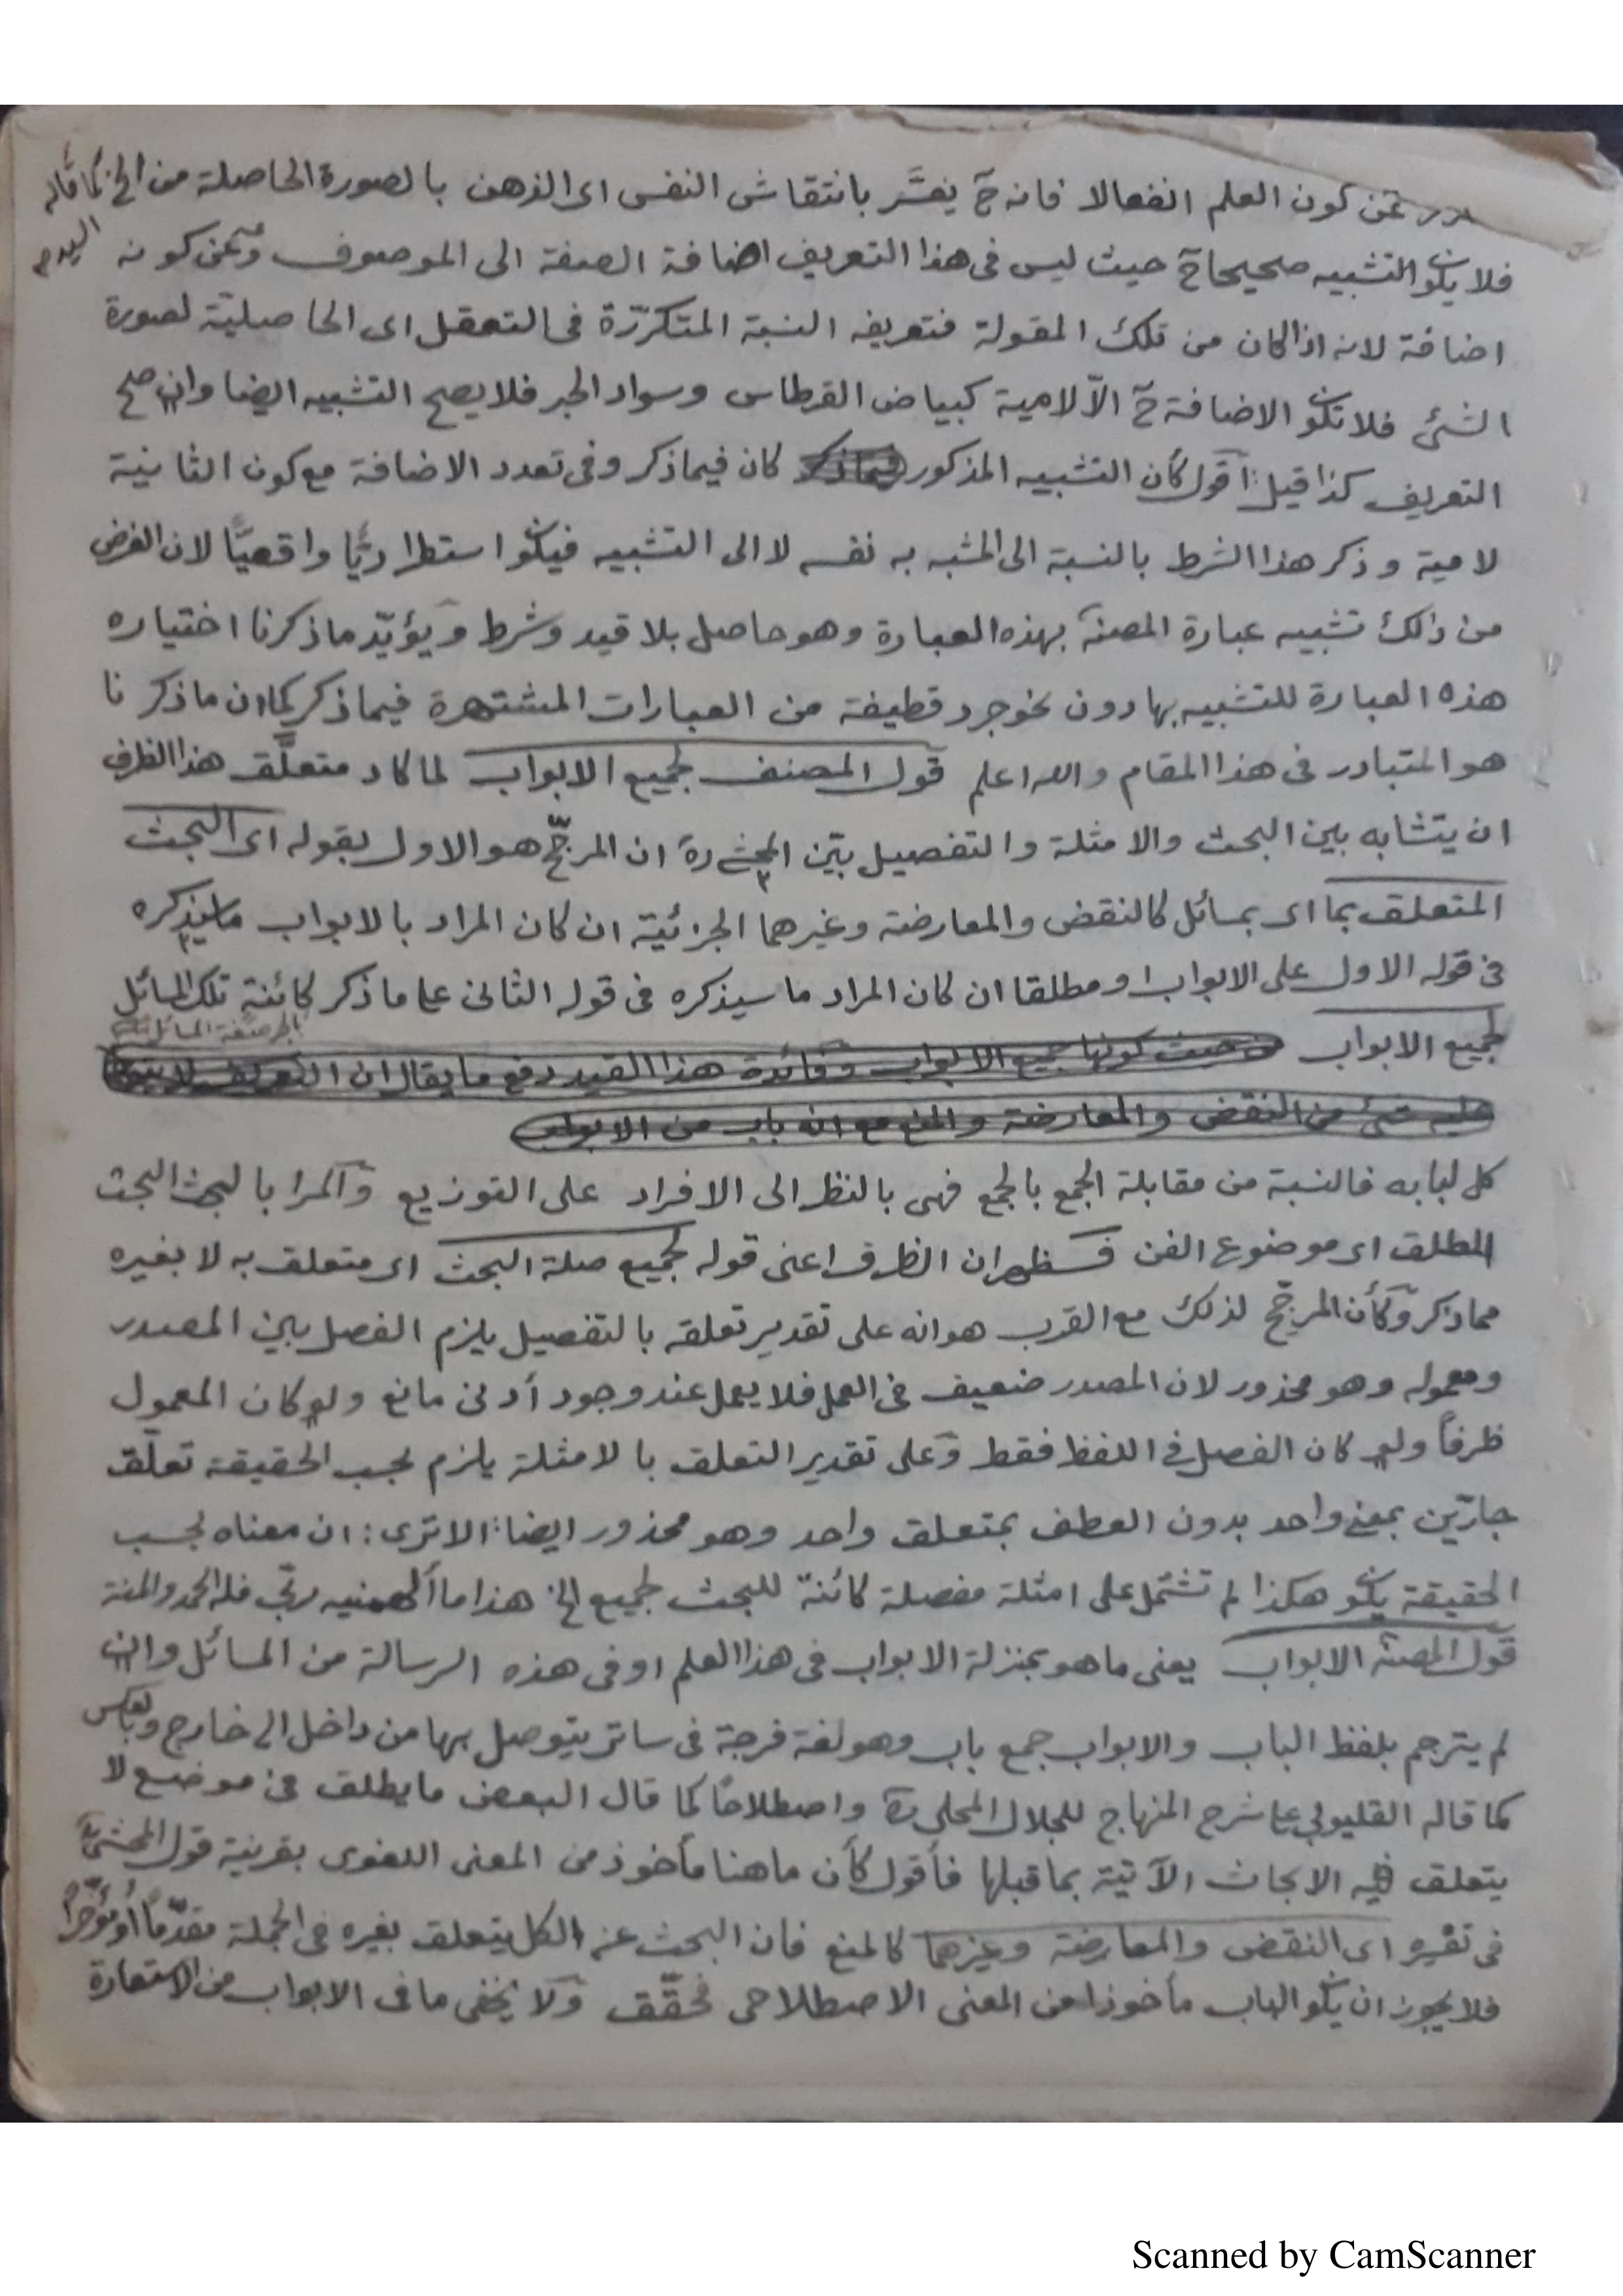 وعن كون العلم انفعالا فانه ح يفسَّر بانتقاش النفس اى الذهن بالصورة الحاصلة من الخ كما قاله
فلا يكون التشبيه صحيحا ح حيث ليس فى هذا التعريف اضافة الصفة الى الموصوف وعن كونه
اضافة لانه اذا كان من تلك المقولة فتعريفه النسبة المتكررّة فى التعقل اى الحاصليّة لصورة
الشئ فلا تكون الاضافة ح الّا لامية كبياض القرطاس وسواد الحبر فلا يصح التشبيه ايضا وان صح
التعريف كذا قيل: اقول كأن التشبيه المذكور كان فيما ذكر وفى تعدد الاضافة مع كون الثانية
لامية وذكر هذا الشرط بالنسبة الى المشبه به نفسه لا الى التشبيه فيكون استطراديًّا واقعيًّا لان الغرض
من ذلك تشبيه عبارة المصنف بهذه العبارة وهو حاصل بلا قيد وشرط ويؤيّد ما ذكرنا اختياره
هذه العبارة للتشبيه بها دون نحو جرد قطيفة من العبارات المشتهرة فيما ذكر كما ان ما ذكرنا
هو المتبادر فى هذا المقام والله اعلم قول المصنف لجميع الابواب لما كاد متعلَّق هذا الظرف
ان يتشابه بين البحث والامثلة والتفصيل بيّن المحشى ره ان المرجّح هو الاول بقوله اى البحث
المتعلق بما اى بمسائل كالنقض والمعارضة وغيرهما الجزئية ان كان المراد بالابواب ما سيذكره
فى قوله الاول على الابواب او مطلقا ان كان المراد ما سيذكره فى قوله الثانى على ما ذكر كائنةٍ تلك المسائل
لجميع الابواب
من حيث كونها لجميع الابواب وفائدة هذا القيد دفع ما يقال ان
شئ من النقض والمعارضة والمنع مع انه باب من الابواب
كل لبابه فالنسبة من مقابلة الجمع بالجمع فهى بالنظر الى الافراد على التوزيع والمراد بالبحث البحث
المطلق اى موضوع الفن فسظهر ان الظرف اعنى قوله لجميع صلة البحث اى متعلق به لا بغيره
مما ذكر وكأن المرجّح لذلك مع القرب هو انه على تقدير تعلقه بالتفصيل يلزم الفصل بين المصدر
ومعموله وهو محذور لان المصدر ضعيف فى العمل فلا يعمل عند وجود أدنى مانع ولو كان المعمول
ظرفاً ولو كان الفصل فى اللفظ فقط وعلى تقدير التعلق بالامثلة يلزم بحسب الحقيقة تعلّق
جارّين بمعنى واحد بدون العطف بمتعلق واحد وهو محذور ايضا: الا ترى: ان معناه بحسب
الحقيقة يكون هكذا لم تشتمل على امثلة مفصلة كائنة للبحث لجميع الخ هذا ما ألهمنيه ربّى فله الحمد والمنة
قول المصنف الابواب يعنى ما هو بمنزلة الابواب فى هذا العلم او فى هذه الرسالة من المسائل وان
لم يترجم بلفظ الباب والابواب جمع باب وهو لغة فرجة فى ساتر يتوصل بها من داخل الى خارج وبالعكس
كما قاله القليوبى على شرح المنهاج للجلال المحلى ره واصطلاحًا كما قال البعض ما يطلق فى موضع لا
يتعلق فيه الابحاث الآتية بما قبلها فأقول كأن ما هنا مأخوذ من المعنى اللغوى بقرينة قول المحشى ره
فى تفسيره اى النقض والمعارضة وغيرهما كالمنع فان البحث عن الكل يتعلق بغيره فى الجملة مقدّمًا أو مؤخّرًا
فلا يجوز ان يكون الباب مأخوذا من المعنى الاصطلاحى فحقّق ولا يخفى ما فى الابواب من الاستعارة
Scanned by CamScanner